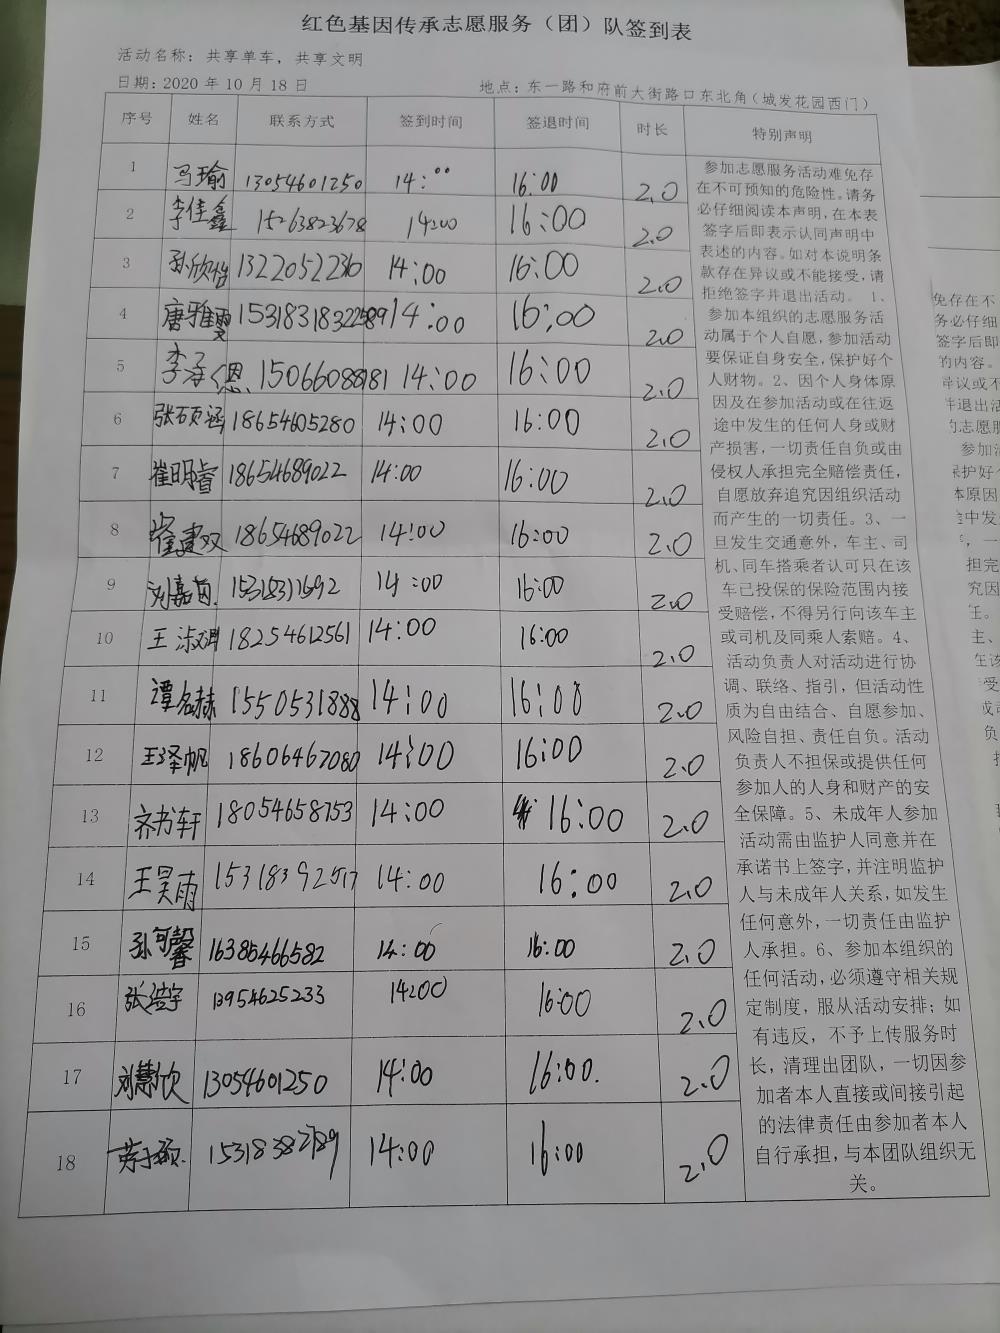 红色基因传承志愿服务（团）队签到表
活动名称：共享单车，共享文明
日期：2020 年 10 月 18 日 地点：东一路和府前大街路口东北角（城发花园西门）
序号 姓名 联系方式 签到时间 签退时间 时长 特别声明
1 冯瑜 13054601250 14:00 16:00 2.0
2 李佳鑫 15263823678 14:00 16:00 2.0
3 孙欣怡 1322052236 14:00 16:00 2.0
4 唐雅雯 14:00 16:00 2.0
5 李承恩 14:00 16:00 2.0
6 张硕涵 18654605280 14:00 16:00 2.0
7 崔明睿 18654689022 14:00 16:00 2.0
8 崔建双 18654689022 14:00 16:00 2.0
9 刘嘉茵 14:00 16:00 2.0
10 王淑渊 18254612561 14:00 16:00 2.0
11 谭名赫 1550531888 14:00 16:00 2.0
12 王泽帆 18606467080 14:00 16:00 2.0
13 齐书轩 18054658753 14:00 16:00 2.0
14 王昊雨 15318392517 14:00 16:00 2.0
15 孙可馨 16385466582 14:00 16:00 2.0
16 张浩宇 13954625233 14:00 16:00 2.0
17 刘慧欣 13054601250 14:00 16:00. 2.0
18 14:00 16:00 2.0
参加志愿服务活动难免存
在不可预知的危险性。请务
必仔细阅读本声明，在本表
签字后即表示认同声明中
表述的内容。如对本说明条
款存在异议或不能接受，请
拒绝签字并退出活动。 1、
参加本组织的志愿服务活
动属于个人自愿，参加活动
要保证自身安全，保护好个
人财物。2、因个人身体原
因及在参加活动或在往返
途中发生的任何人身或财
产损害，一切责任自负或由
侵权人承担完全赔偿责任，
自愿放弃追究因组织活动
而产生的一切责任。3、一
旦发生交通意外，车主、司
机、同车搭乘者认可只在该
车已投保的保险范围内接
受赔偿，不得另行向该车主
或司机及同乘人索赔。4、
活动负责人对活动进行协
调、联络、指引，但活动性
质为自由结合、自愿参加、
风险自担、责任自负。活动
负责人不担保或提供任何
参加人的人身和财产的安
全保障。5、未成年人参加
活动需由监护人同意并在
承诺书上签字，并注明监护
人与未成年人关系，如发生
任何意外，一切责任由监护
人承担。6、参加本组织的
任何活动，必须遵守相关规
定制度，服从活动安排；如
有违反，不予上传服务时
长，清理出团队，一切因参
加者本人直接或间接引起
的法律责任由参加者本人
自行承担，与本团队组织无
关。
免存在不
务必仔细
签字后即
的内容。
异议或不
并退出活
的志愿服
参加活
保护好个
体原因